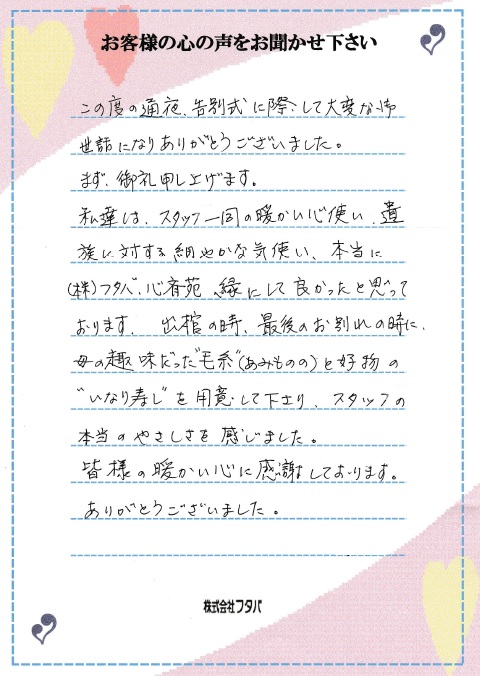 お客様の心の声をお聞かせ下さい
この度の通夜、告別式に際して大変な御
世話になりありがとうございました。
まず、御礼申し上げます。
私達は、スタッフ一同の暖かい心使い、遺
族に対する細やかな気使い、本当に
(株)フタバ・心斎苑、縁にして良かったと思って
おります。 出棺の時、最後のお別れの時に、
母の趣味だった"毛糸"(あみものの)と好物の
"いなり寿し"を用意して下さり、スタッフの
本当のやさしさを感じました。
皆様の暖かい心に感謝しております。
ありがとうございました。
株式会社フタバ